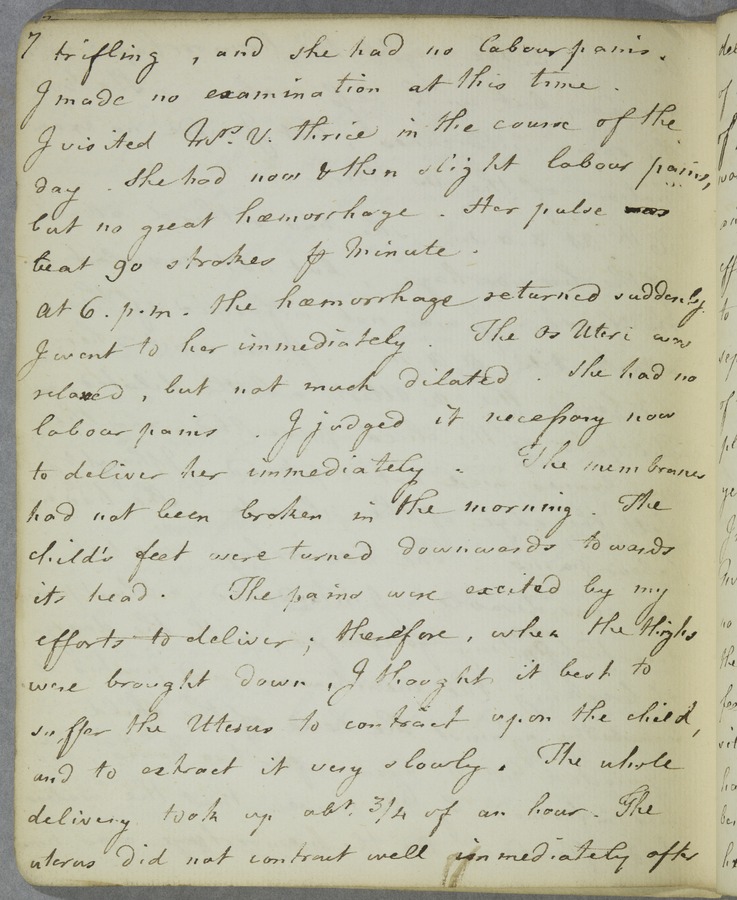 7 trifling, and she had no labour pains.
I made no examination at this time.
I visited Mrs. V. thrice in the course of the
day. She had now & then slight labour pains,
but no great hæmorrhage. Her pulse was
beat 90 strokes ℔ Minute.
at 6. p.m. the hæmorrhage returned suddenly.
I went to her immediately. The Os Uteri was
relaxed, but not much dilated. She had no
labour pains. I judged it necessary now
to deliver her immediately. The membranes
had not been broken in the morning. The
child's feet were turned downwards towards
its head. The pains were excited by my
efforts to deliver; therefore, when the thighs
were brought down, I thought it best to
suffer the Uterus to contract upon the child,
and to extract it very slowly. The whole
delivery took up abt. 3/4 of an hour. The
uterus did not contract well immediately after